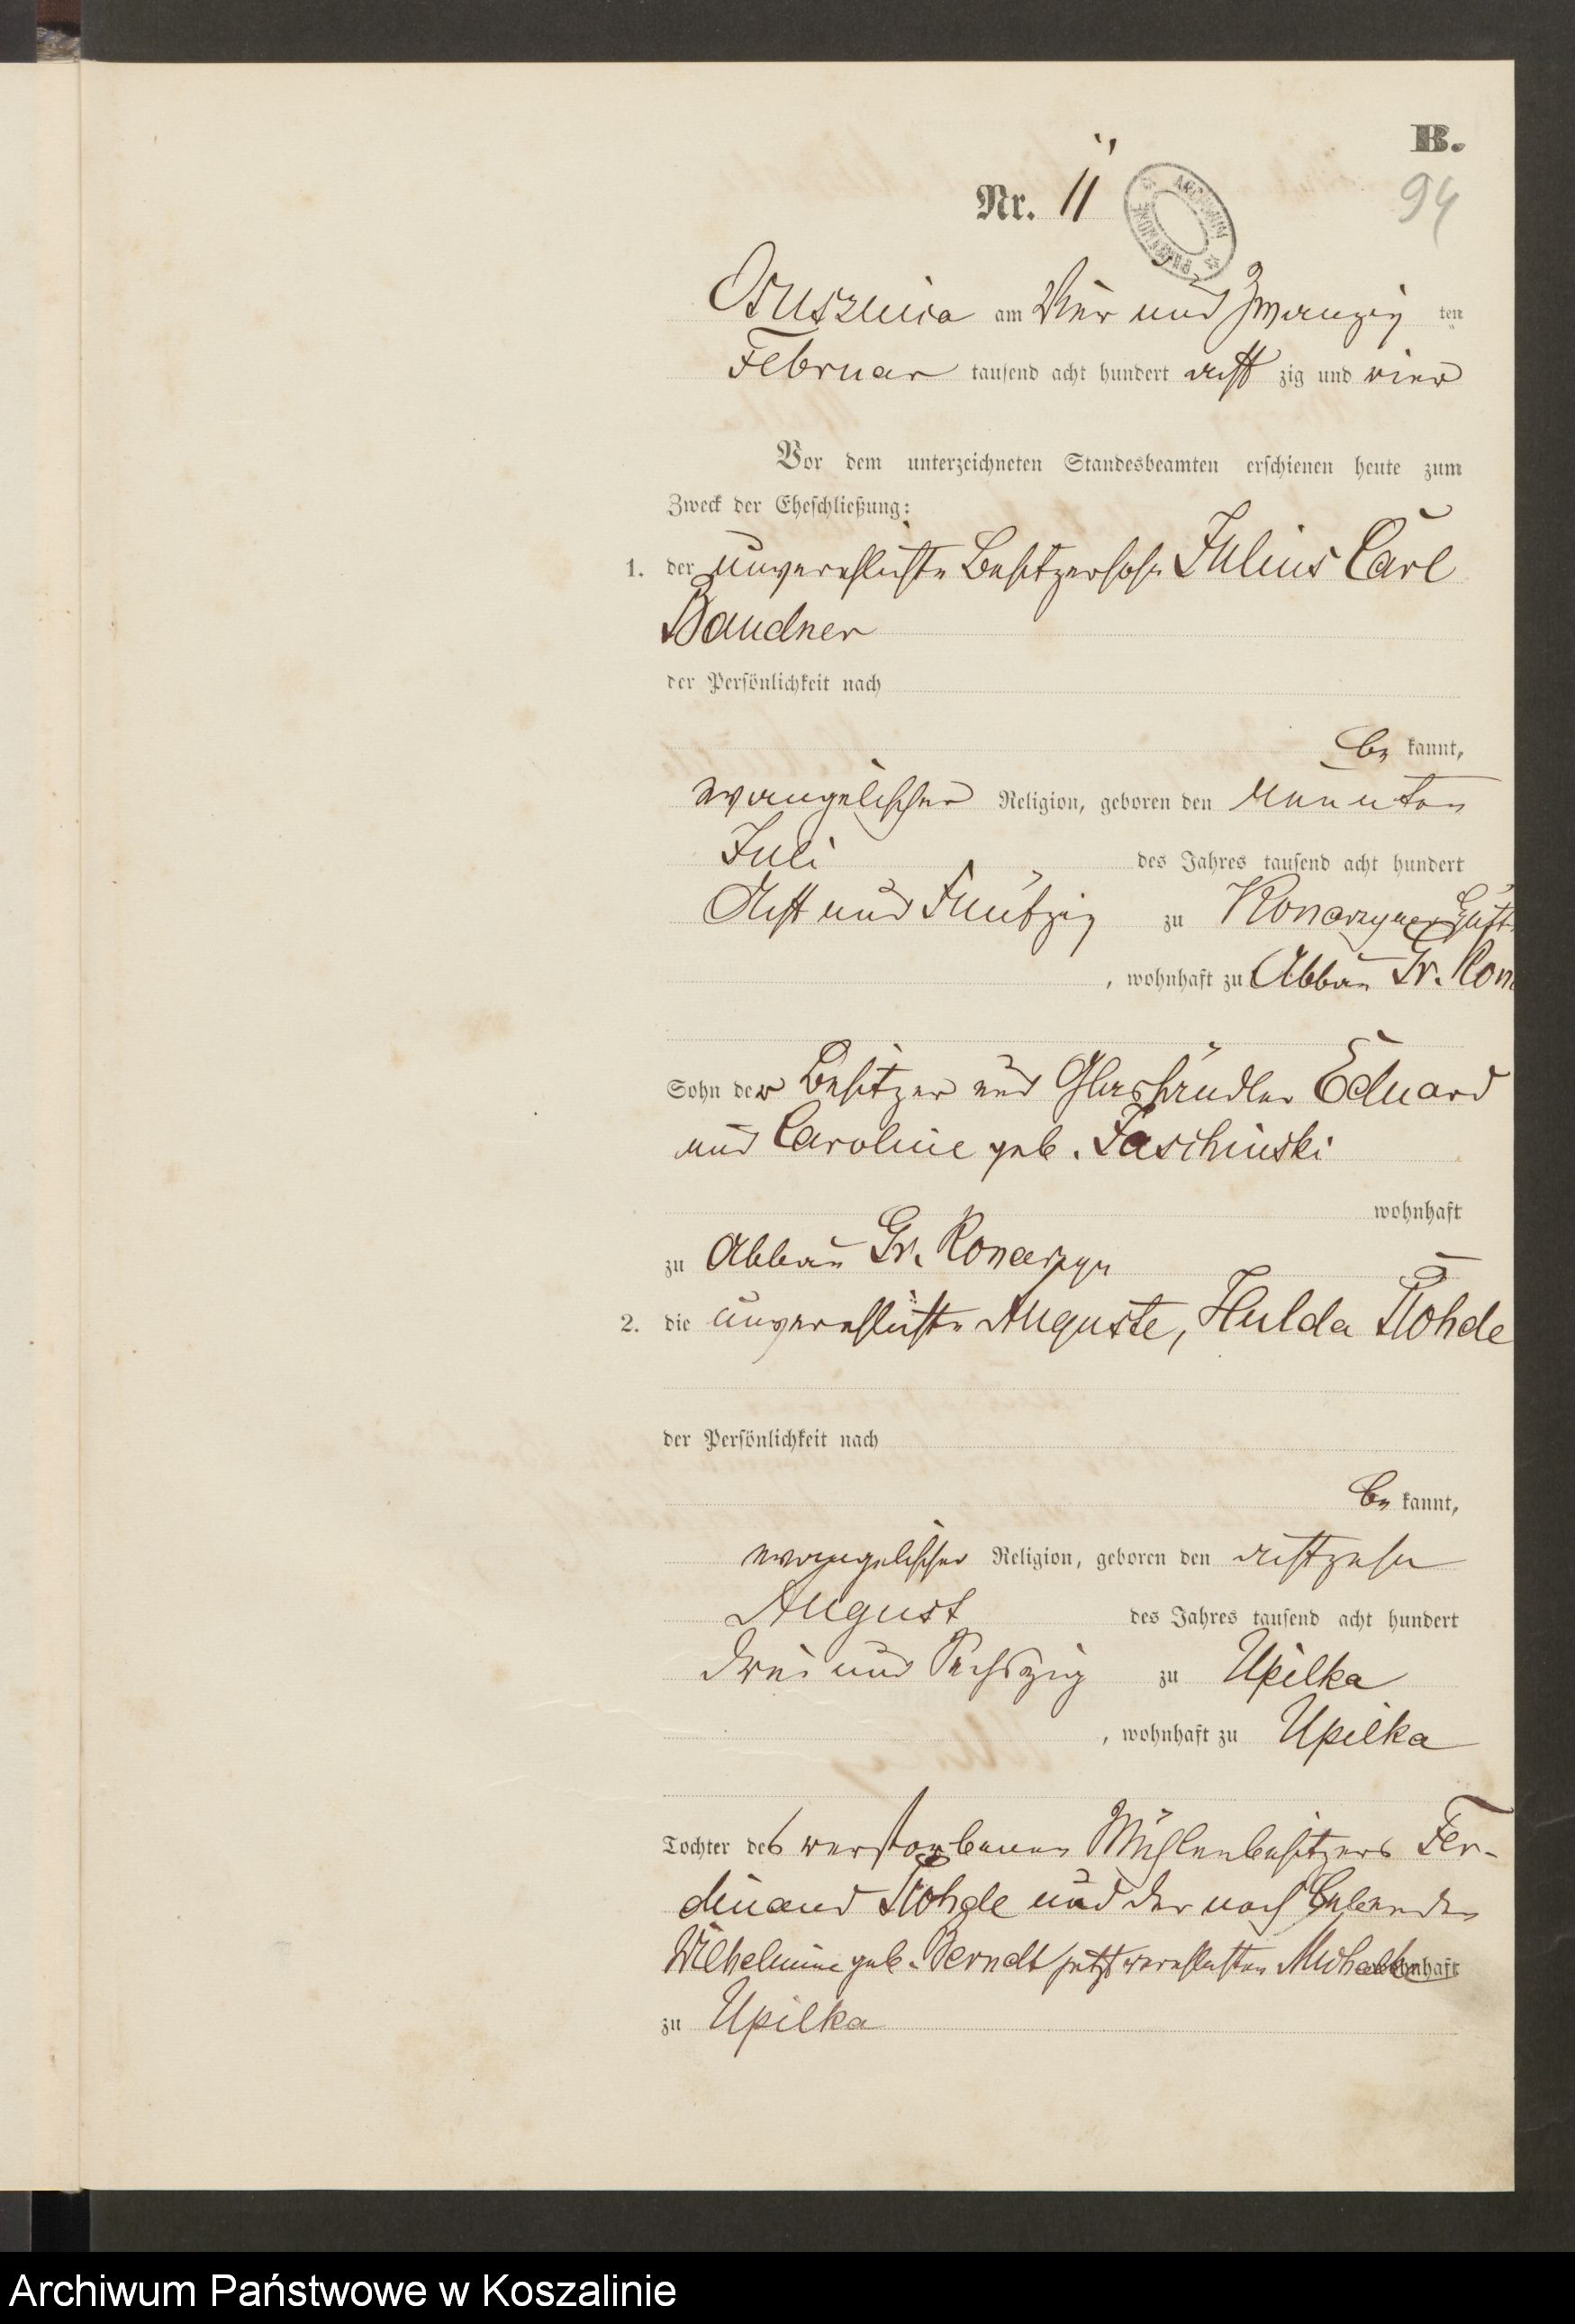 B.
Nr. 11
94
ARCHIWUM PAŃSTWOWE
Osusznica am Vier und Zwanzig ten
Februar tausend acht hundert acht zig und vier
Vor dem unterzeichneten Standesbeamten erschienen heute zum
Zweck der Eheschließung:
1. der unverehlichte Besitzersohn Julius Carl
Bandner
der Persönlichkeit nach
be kannt,
evangelischer Religion, geboren den neunten
Juli des Jahres tausend acht hundert
Acht und Fünfzig zu Konarzyner
, wohnhaft zu Abbau Gr. Kon
Sohn der Besitzer und Glashändler Eduard
und Caroline geb. Jaschinski
wohnhaft
zu Abbau Gr. Konarzyn
2. die unverehlichte Auguste, Hulda Rohde
der Persönlichkeit nach
be kannt,
evangelischer Religion, geboren den achtzehn
August des Jahres tausend acht hundert
drei und Sechszig zu Upilka
, wohnhaft zu Upilka
Tochter des verstorbenen Mühlenbesitzers Fer-
dinand Rohde und der noch lebenden
Wilhelmine geb. Berndt jetzt verehelichten wohnhaft
zu Upilka
Archiwum Państwowe w Koszalinie